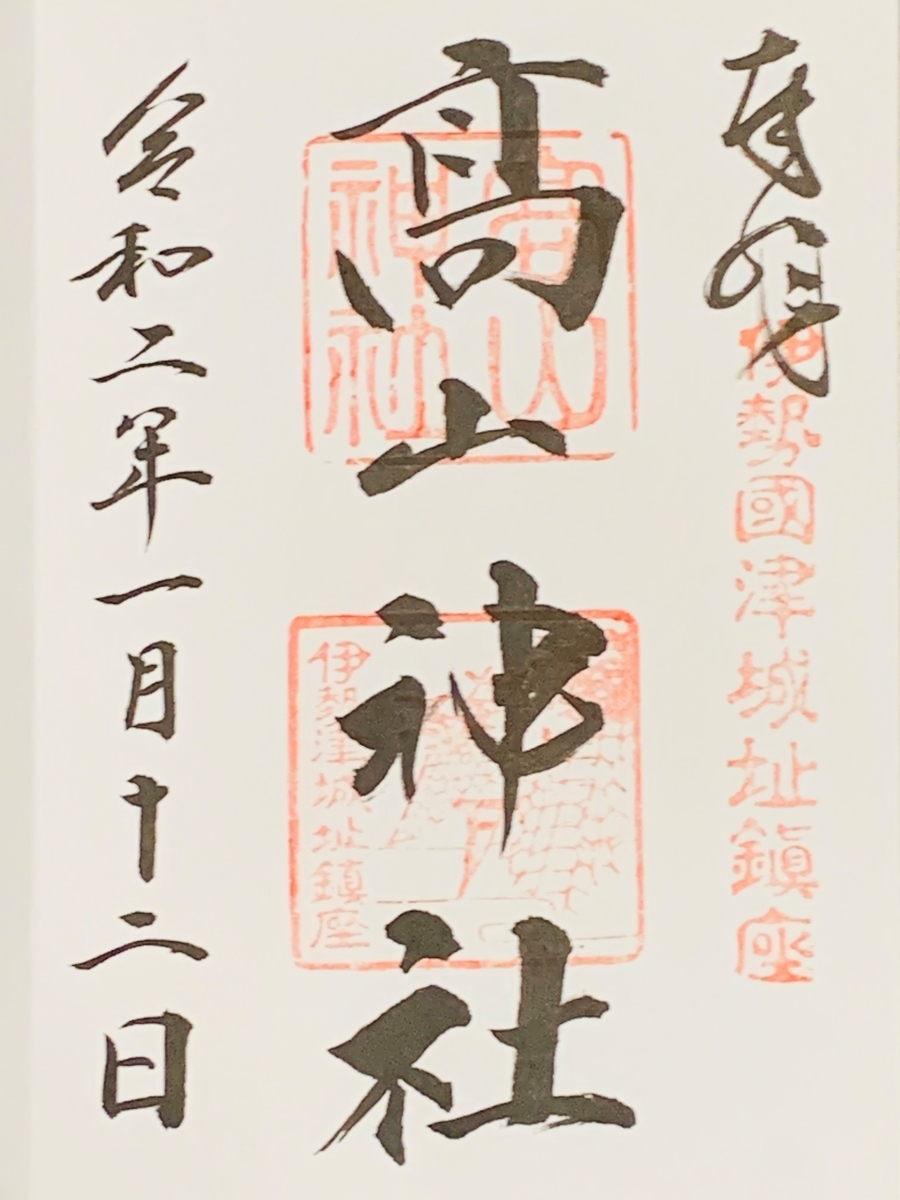 奉拝
伊勢國津城址鎮座
高山神社
高山神社
伊勢津城址鎮座
令和二年一月十二日